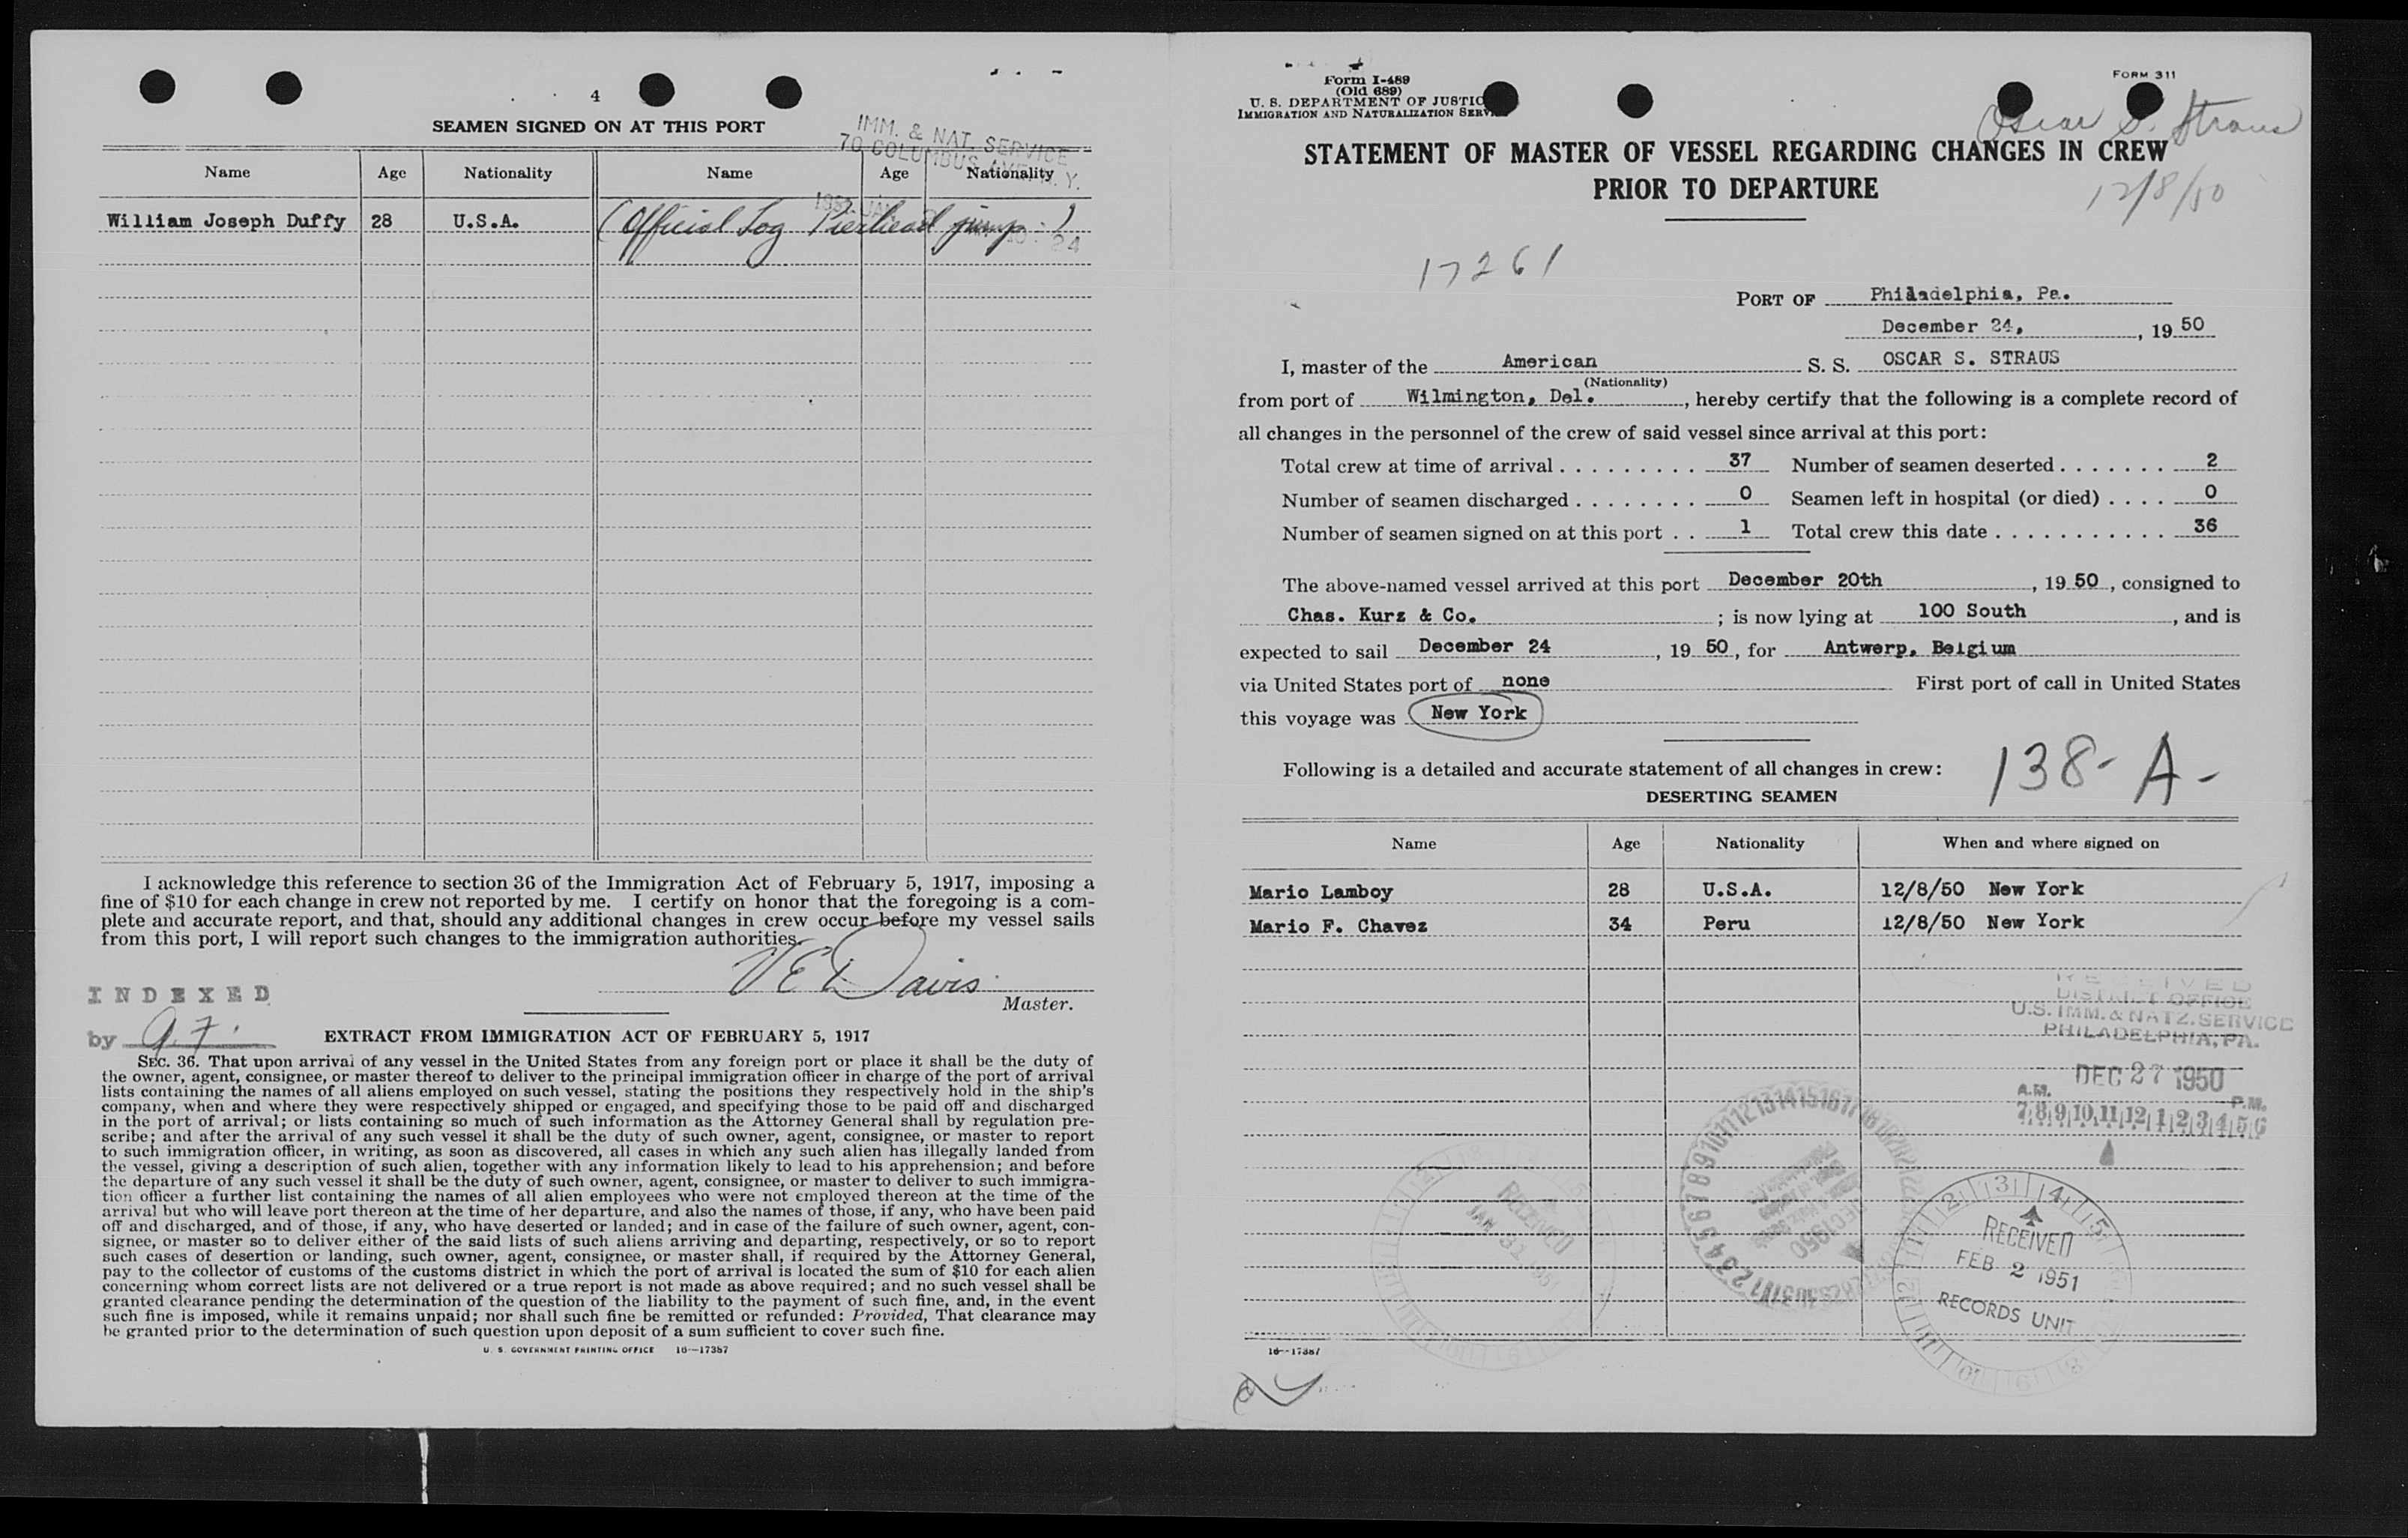 4
SEAMEN SIGNED ON AT THIS PORT
IMM. & NAT. SERVICE
70 COLUMBUS AVE. N. Y.
Name Age Nationality Name Age Nationality
William Joseph Duffy 28 U.S.A. (Official Log Pierhead jump)
I acknowledge this reference to section 36 of the Immigration Act of February 5, 1917, imposing a
fine of $10 for each change in crew not reported by me. I certify on honor that the foregoing is a com-
plete and accurate report, and that, should any additional changes in crew occur before my vessel sails
from this port, I will report such changes to the immigration authorities.
V E Davis
Master.
INDEXED
by
EXTRACT FROM IMMIGRATION ACT OF FEBRUARY 5, 1917
SEC. 36. That upon arrival of any vessel in the United States from any foreign port or place it shall be the duty of
the owner, agent, consignee, or master thereof to deliver to the principal immigration officer in charge of the port of arrival
lists containing the names of all aliens employed on such vessel, stating the positions they respectively hold in the ship's
company, when and where they were respectively shipped or engaged, and specifying those to be paid off and discharged
in the port of arrival; or lists containing so much of such information as the Attorney General shall by regulation pre-
scribe; and after the arrival of any such vessel it shall be the duty of such owner, agent, consignee, or master to report
to such immigration officer, in writing, as soon as discovered, all cases in which any such alien has illegally landed from
the vessel, giving a description of such alien, together with any information likely to lead to his apprehension; and before
the departure of any such vessel it shall be the duty of such owner, agent, consignee, or master to deliver to such immigra-
tion officer a further list containing the names of all alien employees who were not employed thereon at the time of the
arrival but who will leave port thereon at the time of her departure, and also the names of those, if any, who have been paid
off and discharged, and of those, if any, who have deserted or landed; and in case of the failure of such owner, agent, con-
signee, or master so to deliver either of the said lists of such aliens arriving and departing, respectively, or so to report
such cases of desertion or landing, such owner, agent, consignee, or master shall, if required by the Attorney General,
pay to the collector of customs of the customs district in which the port of arrival is located the sum of $10 for each alien
concerning whom correct lists are not delivered or a true report is not made as above required; and no such vessel shall be
granted clearance pending the determination of the question of the liability to the payment of such fine, and, in the event
such fine is imposed, while it remains unpaid; nor shall such fine be remitted or refunded: Provided, That clearance may
be granted prior to the determination of such question upon deposit of a sum sufficient to cover such fine.
U. S. GOVERNMENT PRINTING OFFICE 16—17387
Form I-489
(Old 689)
U. S. DEPARTMENT OF JUSTIC
IMMIGRATION AND NATURALIZATION SERV
FORM 311
Oscar S. Straus
STATEMENT OF MASTER OF VESSEL REGARDING CHANGES IN CREW
PRIOR TO DEPARTURE
12/8/50
17261
PORT OF Philadelphia, Pa.
December 24, , 19 50
I, master of the American S. S. OSCAR S. STRAUS
(Nationality)
from port of Wilmington, Del. , hereby certify that the following is a complete record of
all changes in the personnel of the crew of said vessel since arrival at this port:
Total crew at time of arrival . . . . . . . . . 37 Number of seamen deserted . . . . . . . 2
Number of seamen discharged . . . . . . . . 0 Seamen left in hospital (or died) . . . . 0
Number of seamen signed on at this port . . 1 Total crew this date . . . . . . . . . . . 36
The above-named vessel arrived at this port December 20th , 19 50 , consigned to
Chas. Kurz & Co. ; is now lying at 100 South , and is
expected to sail December 24 , 19 50 , for Antwerp, Belgium
via United States port of none First port of call in United States
this voyage was New York
Following is a detailed and accurate statement of all changes in crew: 138-A-
DESERTING SEAMEN
Name Age Nationality When and where signed on
Mario Lamboy 28 U.S.A. 12/8/50 New York
Mario F. Chavez 34 Peru 12/8/50 New York
RECEIVED
DISTRICT OFFICE
U.S. IMM. & NATZ. SERVICE
PHILADELPHIA, PA.
DEC 27 1950
A.M. P.M.
7 8 9 10 11 12 1 2 3 4 5 6
RECEIVED
JAN 31 1951
RECEIVED
FEB 2 1951
RECORDS UNIT
16—17387